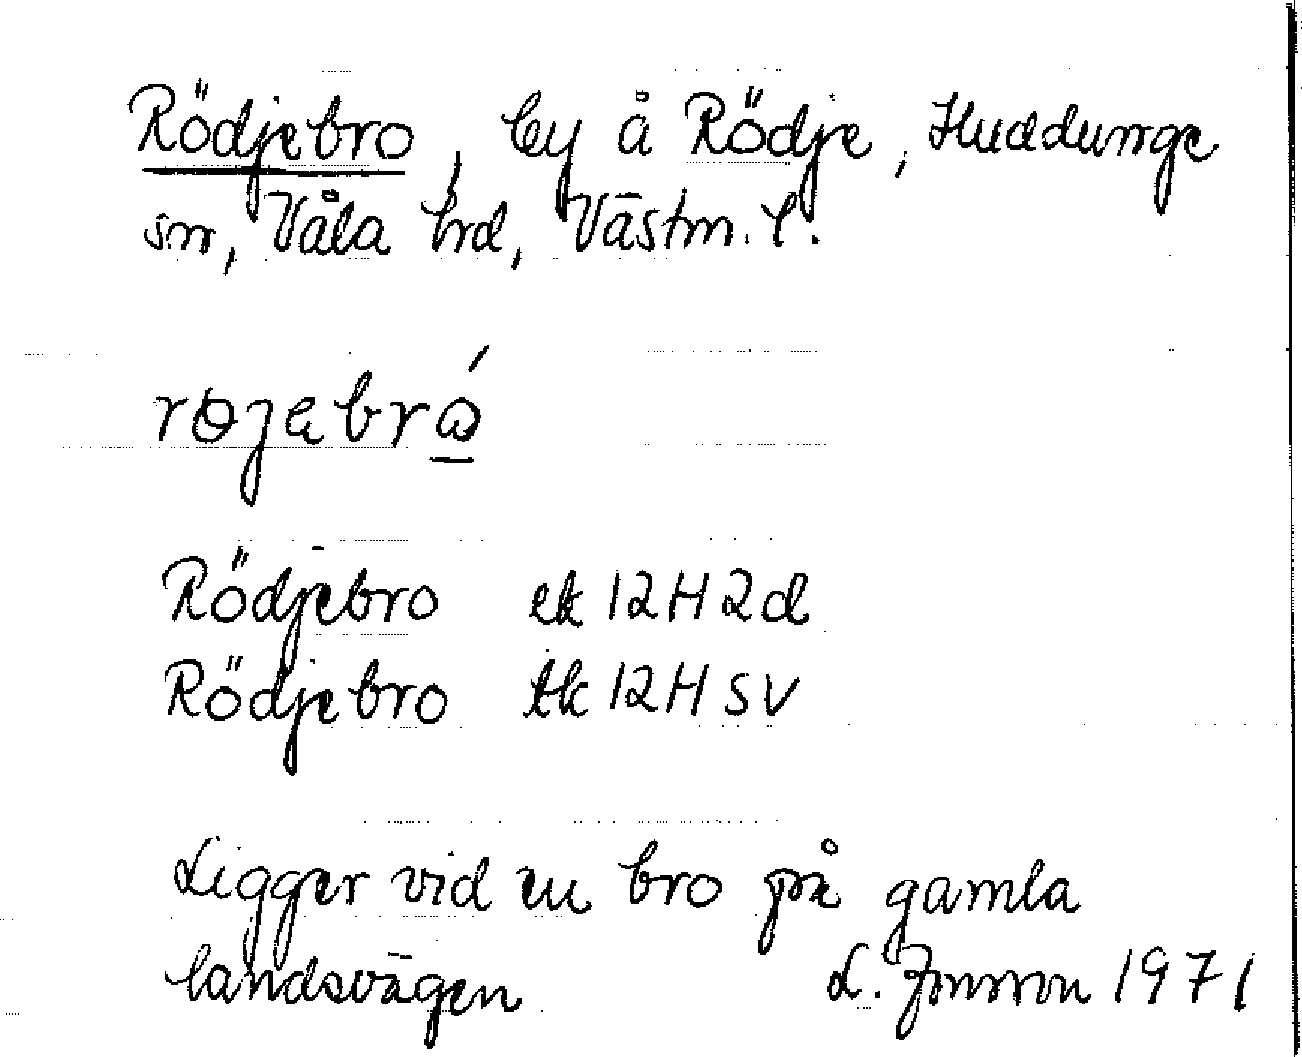 Rödjebro, by å Rödje, Huddunge
sn, Våla hrd, Västm. l.
røjebrώ
Rödjebro ek 12H2d
Rödjebro tk 12H SV
Ligger vid en bro på gamla
landsvägen L. Jonsson 1971